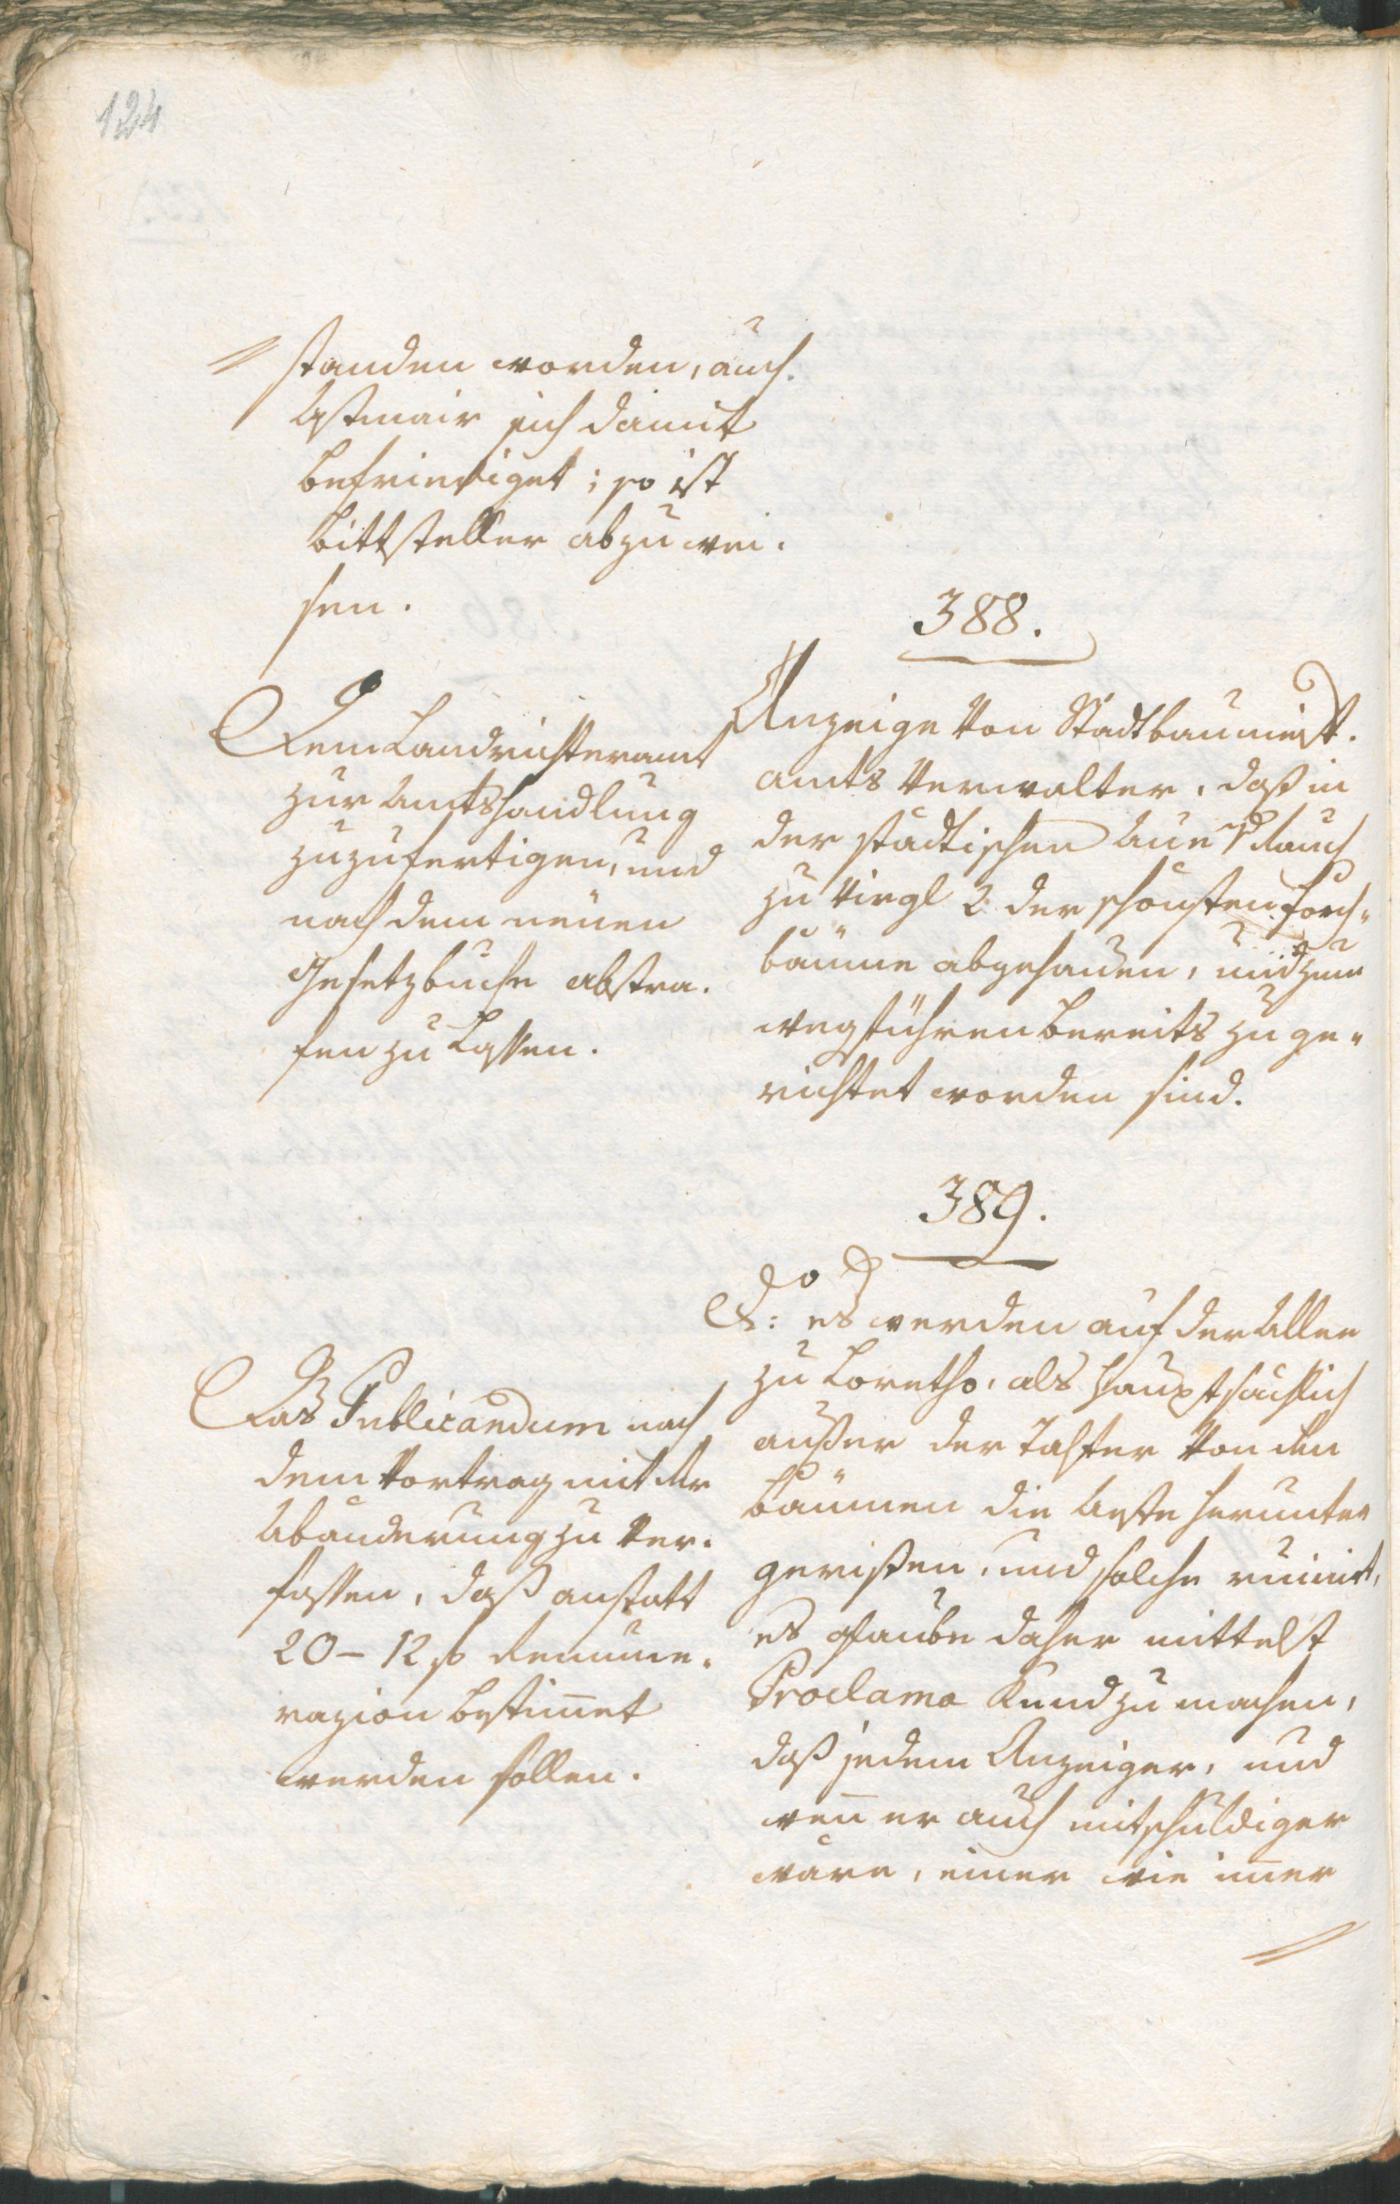 124
standen worden, auch
Astmair sich damit
befriediget; so ist
Bittsteller abzuwei-
sen.
388.
Dem Landrichteramt
zur Amtshandlung
zuzufertigen, und
nach dem neuen
Gesetzbuche abstra-
fen zu lassen.
Anzeige von Stadtbaumeist.
amts Verwalter, daß in
der städtischen Aue
zu Virgl 2 der schönsten Forch-
bäume abgehauen, und zum
wegführen bereits zu ge-
richtet worden sind.
389.
Das Publicandum nach
dem Vortrag mit der
Abänderung zu ver-
fassen, daß anstatt
20 – 12 f Remune-
razion bestim̅et
werden sollen.
do
Es werden auf der Allee
zu Loretho, als hauptsächlich
außer der Talfer von den
Bäumen die Aeste herunter
gerißen, und solche ruinirt,
es glaube daher mittelst
Proclama Kund zu machen,
daß jedem Anzeiger, und
wen̅ er auch mitschuldiger
wäre, einer wie im̅er